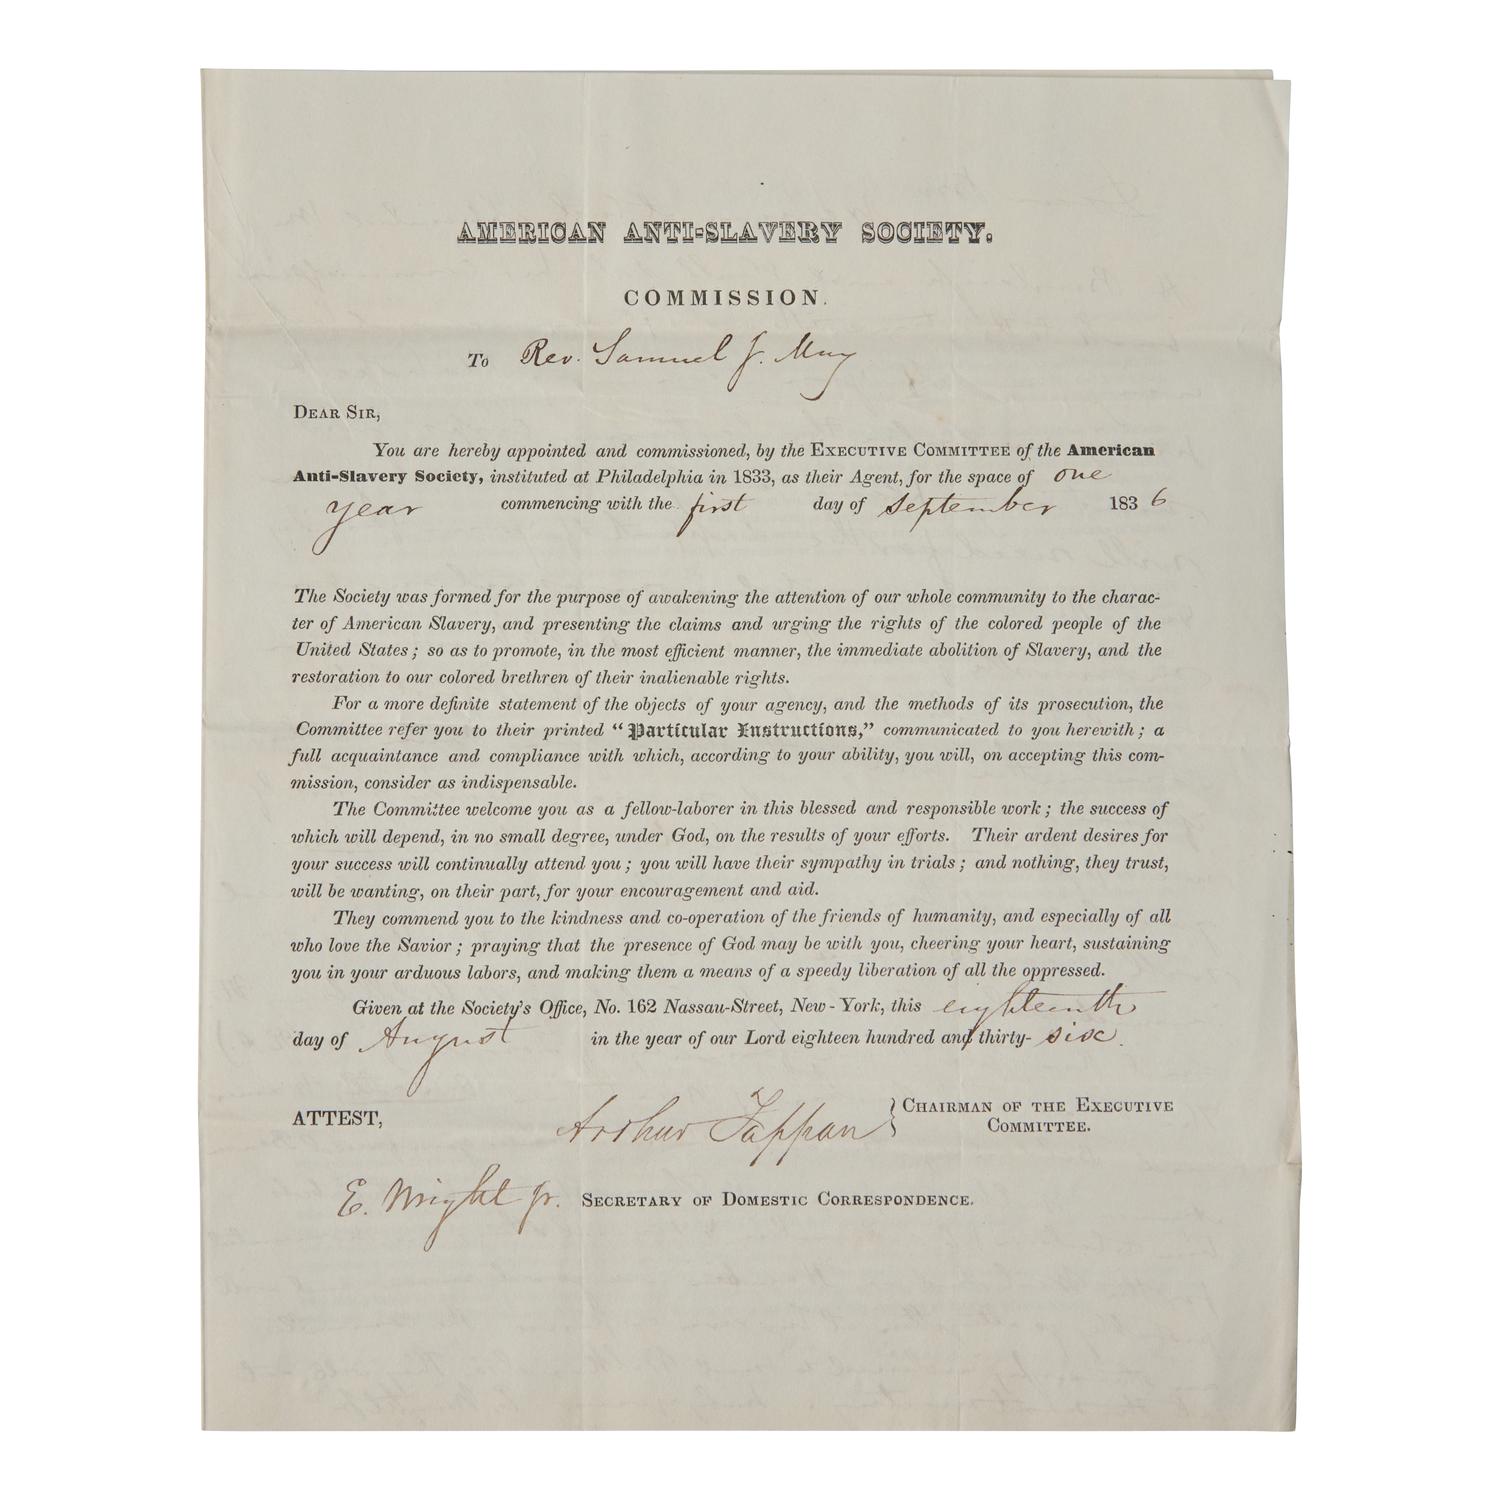 AMERICAN ANTI-SLAVERY SOCIETY.
COMMISSION.
To Rev. Samuel J. May
DEAR SIR,
You are hereby appointed and commissioned, by the EXECUTIVE COMMITTEE of the American
Anti-Slavery Society, instituted at Philadelphia in 1833, as their Agent, for the space of one
year commencing with the first day of September 1836
The Society was formed for the purpose of awakening the attention of our whole community to the charac-
ter of American Slavery, and presenting the claims and urging the rights of the colored people of the
United States; so as to promote, in the most efficient manner, the immediate abolition of Slavery, and the
restoration to our colored brethren of their inalienable rights.
For a more definite statement of the objects of your agency, and the methods of its prosecution, the
Committee refer you to their printed "Particular Instructions," communicated to you herewith; a
full acquaintance and compliance with which, according to your ability, you will, on accepting this com-
mission, consider as indispensable.
The Committee welcome you as a fellow-laborer in this blessed and responsible work; the success of
which will depend, in no small degree, under God, on the results of your efforts. Their ardent desires for
your success will continually attend you; you will have their sympathy in trials; and nothing, they trust,
will be wanting, on their part, for your encouragement and aid.
They commend you to the kindness and co-operation of the friends of humanity, and especially of all
who love the Savior; praying that the presence of God may be with you, cheering your heart, sustaining
you in your arduous labors, and making them a means of a speedy liberation of all the oppressed.
Given at the Society's Office, No. 162 Nassau-Street, New-York, this eighteenth
day of August in the year of our Lord eighteen hundred and thirty-six.
ATTEST,
Arthur Tappan } CHAIRMAN OF THE EXECUTIVE
COMMITTEE.
E. Wright Jr. SECRETARY OF DOMESTIC CORRESPONDENCE.